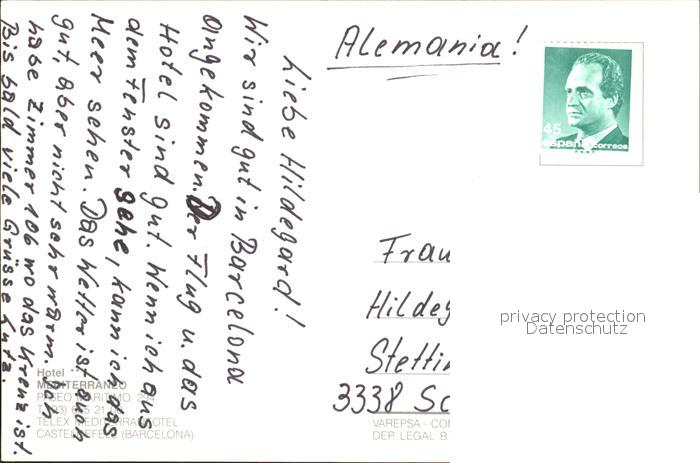 Liebe Hildegard!
Wir sind gut in Barcelona
angekommen. Der Flug u. das
Hotel sind gut. Wenn ich aus
dem Fenster gehe, kann ich das
Meer sehen. Das Wetter ist auch
gut, aber nicht sehr warm. Ich
habe Zimmer 106 wo das Kreuz ist.
Bis bald viele Grüsse Lutz.
Alemania!
45
españa correos
Frau
Hildeg
Stettin
3338 Sc
privacy protection
Datenschutz
Hotel ***
MEDITERRANEO
PASEO MARITIMO, 294
TELEX MEDITERRANHOTEL
CASTELLDEFELS (BARCELONA)
VAREPSA - CO
DEP. LEGAL B.